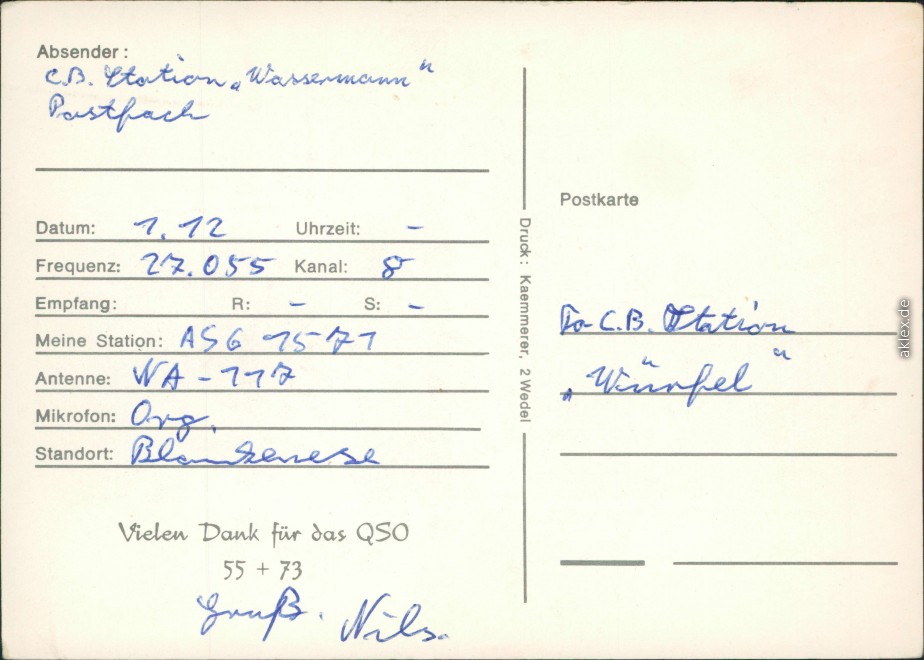 Absender:
C.B. Station „Wassermann"
Postfach
Datum: 1.12 Uhrzeit: -
Frequenz: 27.055 Kanal: 8
Empfang: R: - S: -
Meine Station: ASG 1571
Antenne: WA-117
Mikrofon: Org.
Standort: Blankenese
Vielen Dank für das QSO
55 + 73
Gruß. Nils.
Druck: Kaemmerer, 2 Wedel
Postkarte
To C.B. Station
„Würfel"
aklex.de